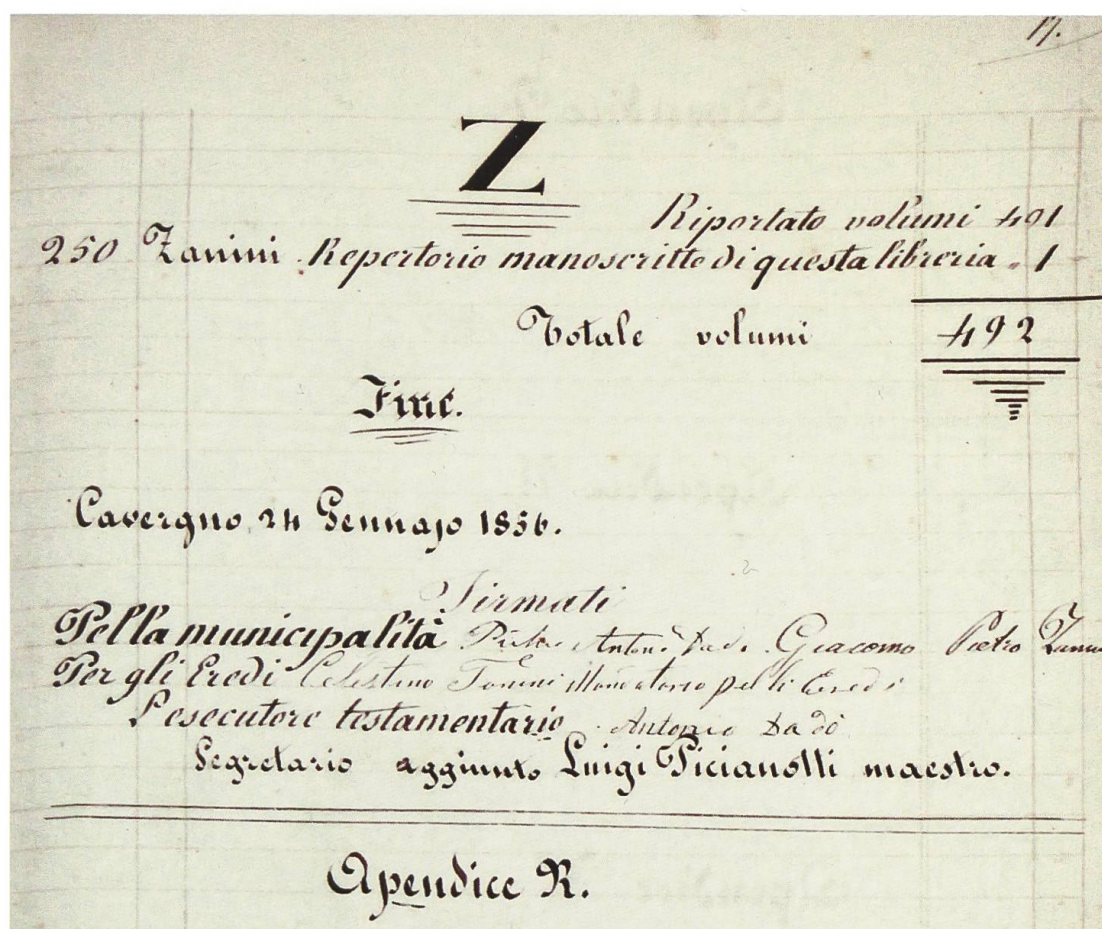 17.
Z
Riportato volumi 491
250 Zanini Repertorio manoscritto di questa libreria „ 1
Totale volumi 492
Fine.
Cavergno, 24 Gennajo 1856.
Firmati
Pella municipalità Antonio Dadò Giacomo Pietro
Per gli Eredi Celestino Tonini Mandatario pelli Eredi
L'esecutore testamentario Antonio Dadò
Segretario aggiunto Luigi Picianotti maestro.
Apendice R.